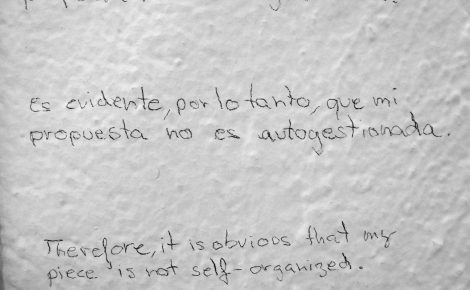 Es evidente, por lo tanto, que mi
propuesta no es autogestionada.
Therefore, it is obvious that my
piece is not self-organized.